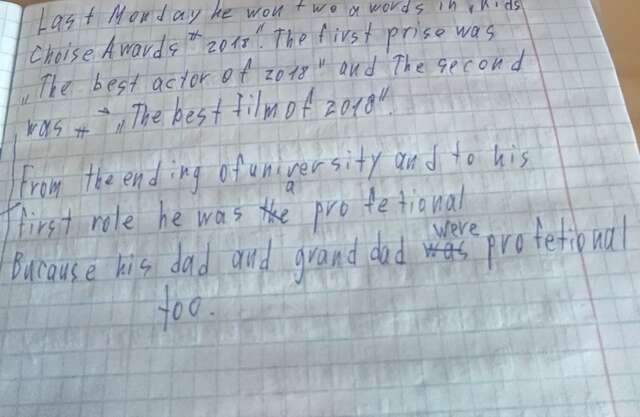 Last Monday he won two awords in „Kids
Choise Awards "2018". The first prise was
„The best actor of 2018" and The second
was „The best film of 2018".
From the ending of university and to his
first role he was the a profetional
Bucause his dad and grand dad was were profetional
too.